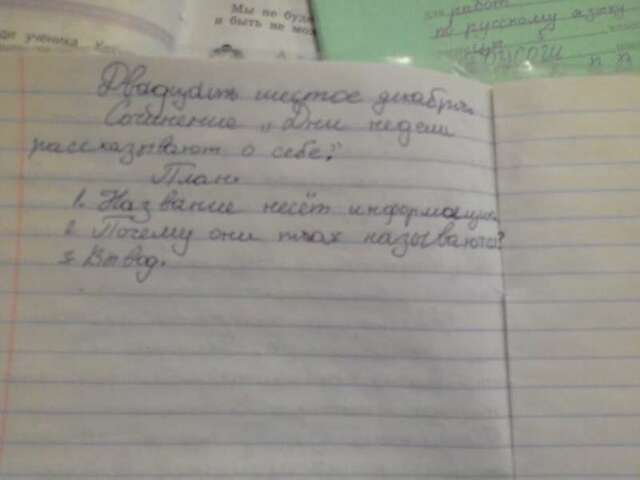 Двадцать шестое декабря.
Сочинение „Дни недели
рассказывают о себе."
План
1. Название несёт информацию
2. Почему они так называются?
3. Вывод.
ученика
Мы не буд
и быть не мо
работ
по русскому языку